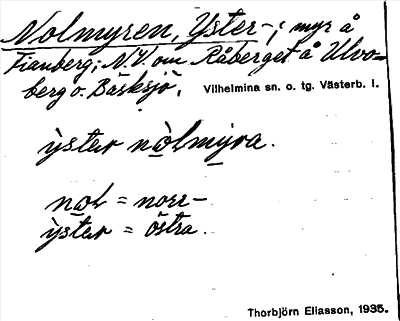 Nolmyren, Yster-; myr å
Fianberg; N.V. om Råberget å Ulvo=
berg o. Bäsksjö.
Vilhelmina sn. o. tg. Västerb. l.
ỳster nòlmyra.
nol = norr-
ỳster = östra.
Thorbjörn Eliasson, 1935.